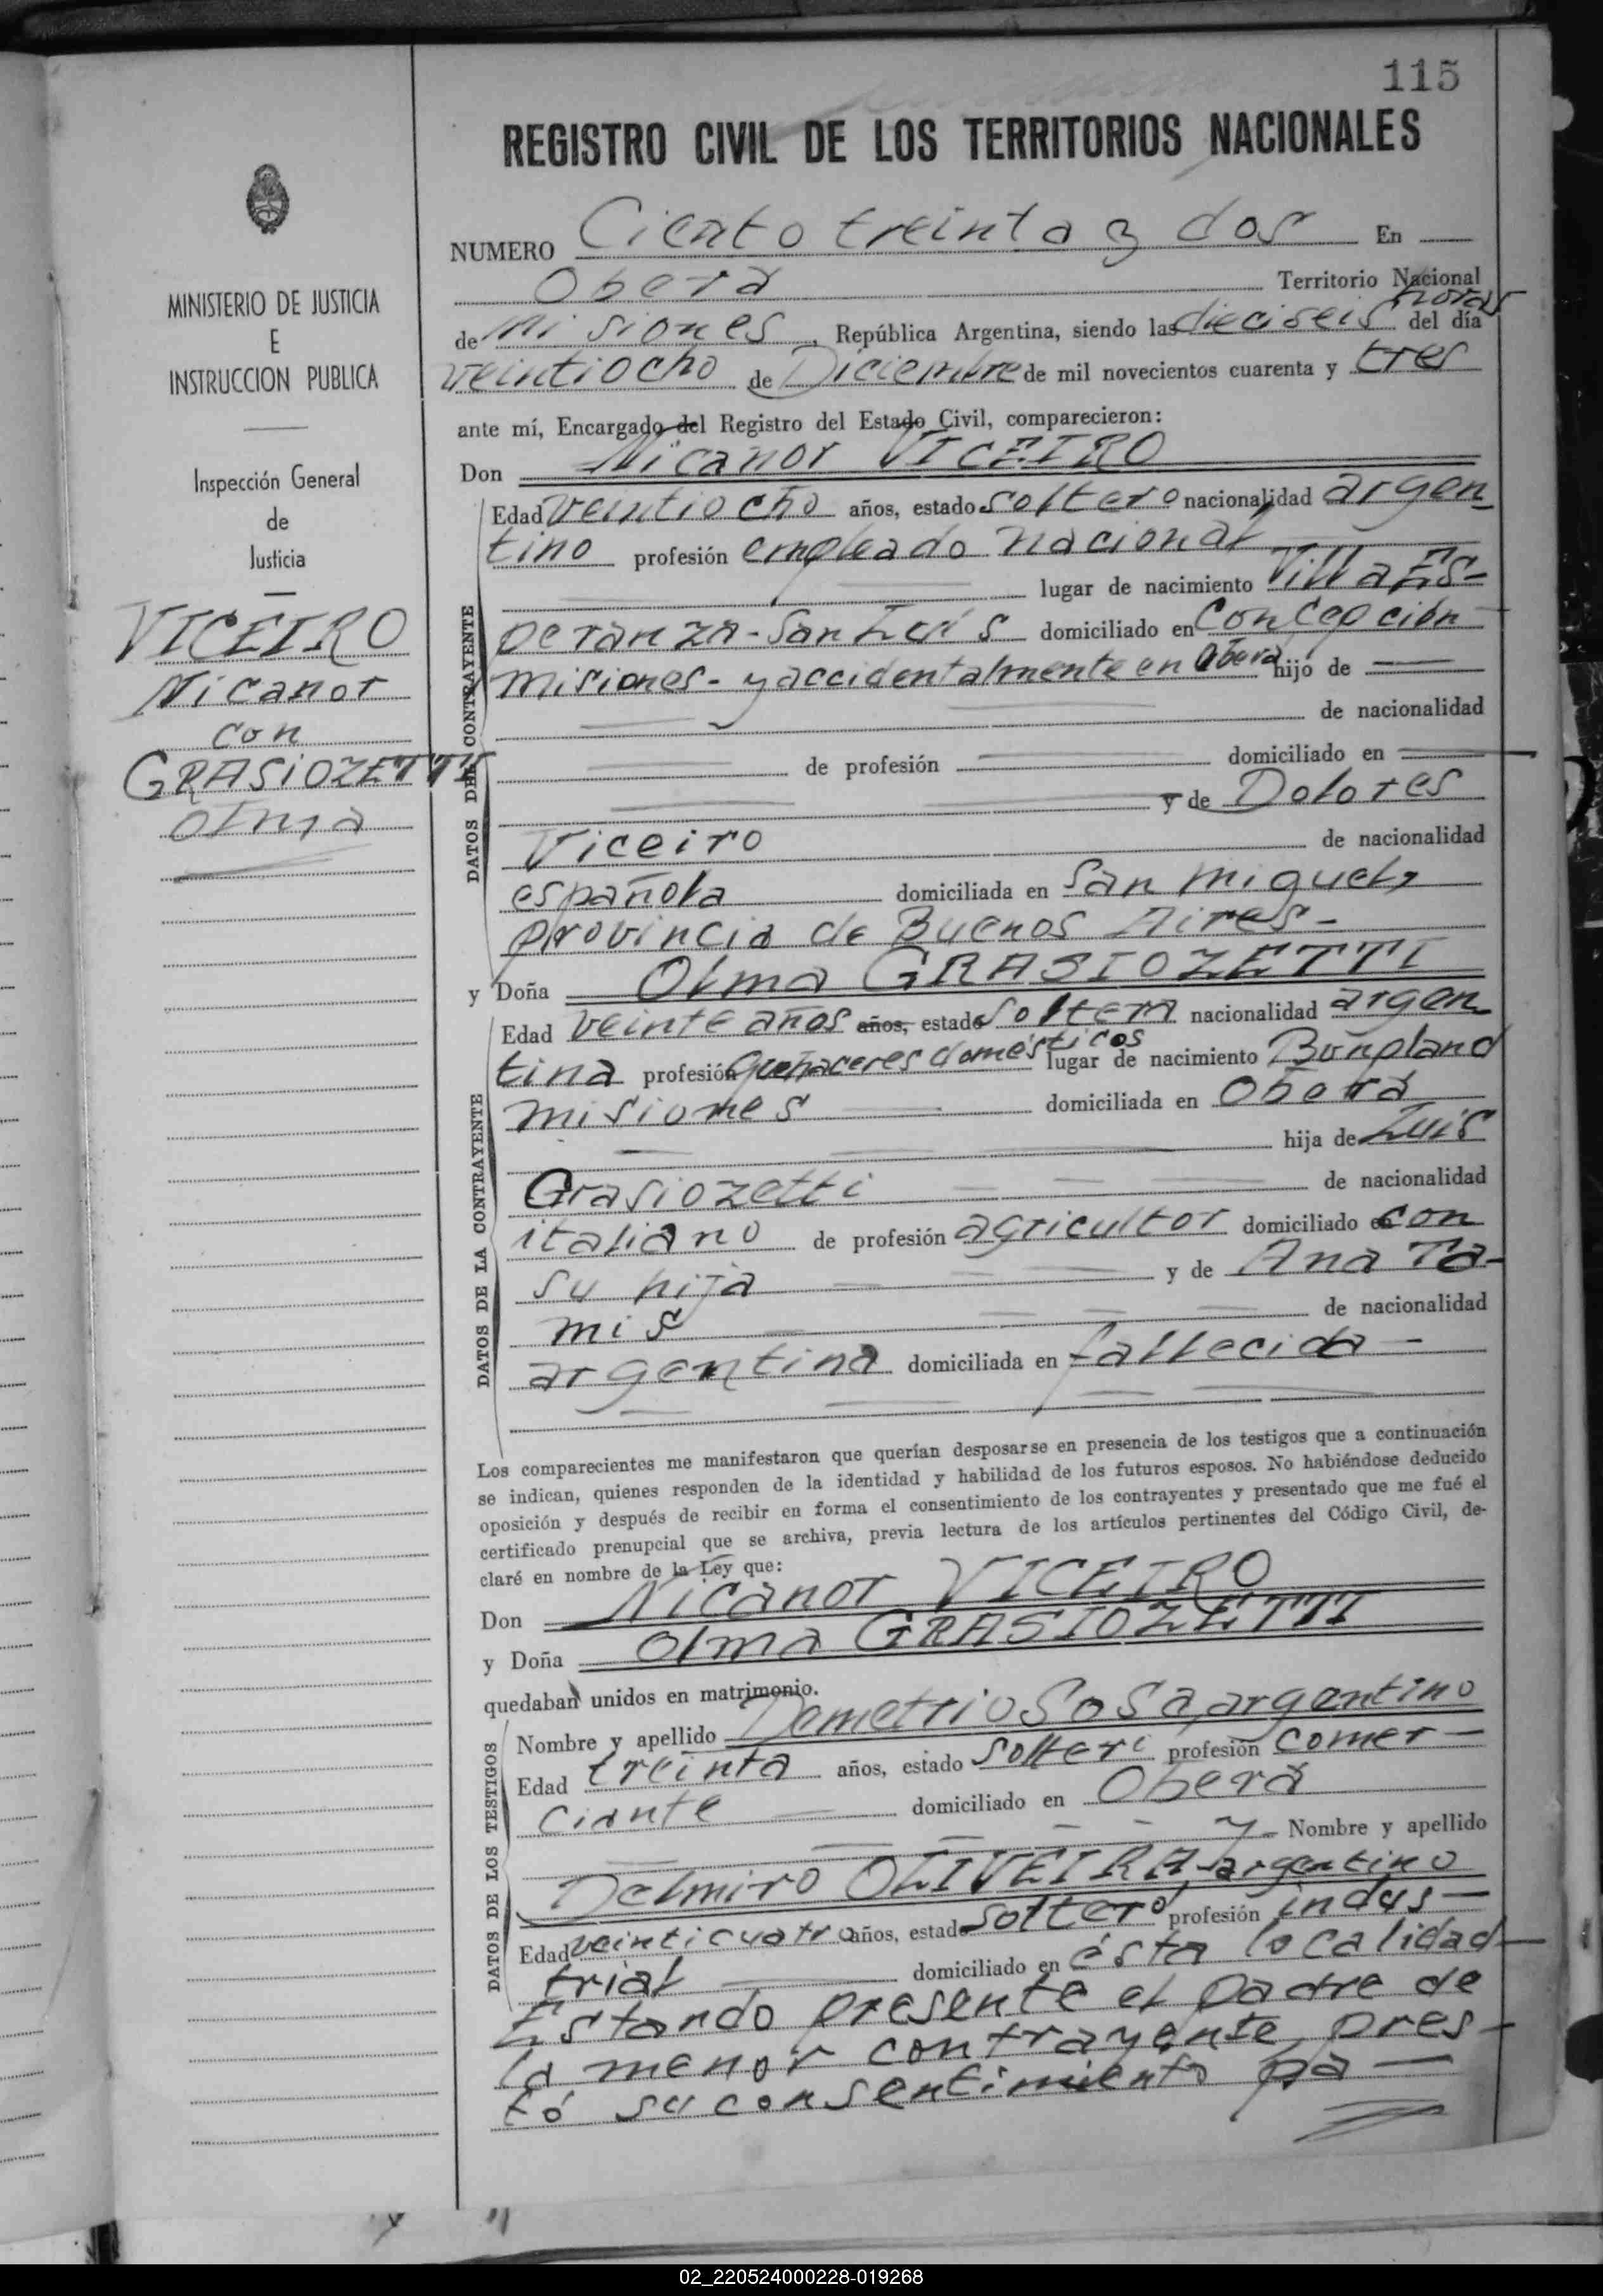 115
REGISTRO CIVIL DE LOS TERRITORIOS NACIONALES
NUMERO Ciento treinta y dos En
Oberá Territorio Nacional
de Misiones, República Argentina, siendo las dieciseis horas del día
veintiocho de Diciembre de mil novecientos cuarenta y tres
ante mí, Encargado del Registro del Estado Civil, comparecieron:
Don Nicanor VICEIRO
Edad veintiocho años, estado soltero nacionalidad argen
tino profesión empleado nacional
lugar de nacimiento Villa Es-
peranza - San Luis domiciliado en Concepción
Misiones - y accidentalmente en Oberá hijo de
de nacionalidad
de profesión domiciliado en
y de Dolores
Viceiro de nacionalidad
española domiciliada en San Miguel,
provincia de Buenos Aires -
y Doña Olma GRASIOZETTI
Edad veinte años años, estado soltera nacionalidad argen
tina profesión quehaceres domésticos lugar de nacimiento Bonpland
Misiones domiciliada en Oberá
hija de Luis
Grasiozetti de nacionalidad
italiano de profesión agricultor domiciliado en con
su hija y de Ana Ta-
mis de nacionalidad
argentina domiciliada en fallecida -
Los comparecientes me manifestaron que querían desposarse en presencia de los testigos que a continuación
se indican, quienes responden de la identidad y habilidad de los futuros esposos. No habiéndose deducido
oposición y después de recibir en forma el consentimiento de los contrayentes y presentado que me fué el
certificado prenupcial que se archiva, previa lectura de los artículos pertinentes del Código Civil, de-
claré en nombre de la Ley que:
Don Nicanor VICEIRO
y Doña Olma GRASIOZETTI
quedaban unidos en matrimonio.
Nombre y apellido Demetrio Sosa, argentino
Edad treinta años, estado soltero profesión comer-
ciante domiciliado en Oberá
y Nombre y apellido
Delmiro OLIVEIRA, argentino
Edad veinticuatro años, estado soltero profesión indus-
trial domiciliado en ésta localidad
Estando presente el padre de
la menor contrayente, pres-
tó su consentimiento pa-
DATOS DEL CONTRAYENTE
DATOS DE LA CONTRAYENTE
DATOS DE LOS TESTIGOS
MINISTERIO DE JUSTICIA
E
INSTRUCCION PUBLICA
Inspección General
de
Justicia
VICEIRO
Nicanor
con
GRASIOZETTI
Olma
02_220524000228-019268